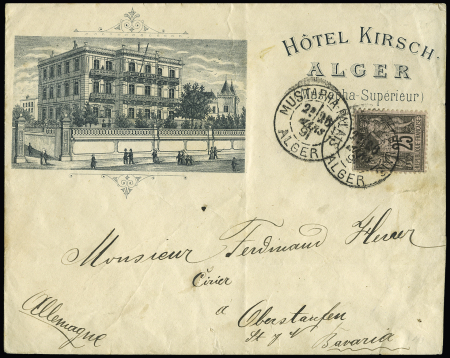 HÔTEL KIRSCH.
ALGER
(Mustapha-Supérieur)
MUSTAPHA-PALAIS
ALGER
ALGER
25
Monsieur Ferdinand
à
Oberstaufen
Bavaria
Allemagne